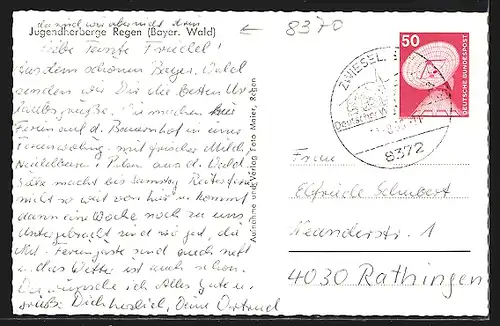 da sind wir aber nicht drin
8370
Jugendherberge Regen (Bayer. Wald)
Liebe Tante Friedel!
Aus dem schönen Bayer. Wald
senden wir Dir die besten Ur-
laubsgrüße. Wir machen hier
Ferien auf d. Bauernhof in einer
Ferienwohnung mit frischer Milch,
Heidelbeer- u. Pilzen aus d. Wald.
Silke macht bis Samstag Reiterferien
nicht so weit von hier u. kommt
dann eine Woche noch zu uns.
Untergebracht sind wir gut, die
Feriengäste sind auch nett
u. das Wetter ist auch schön.
Wir wünsche ich Alles Gute u.
grüße Dich herzlich, Deine Ortrud
Aufnahme und Verlag Foto Maier, Regen
ZWIESEL
8372
50
DEUTSCHE BUNDESPOST
Frau
Elfriede Schubert
Neanderstr. 1
4030 Rathingen